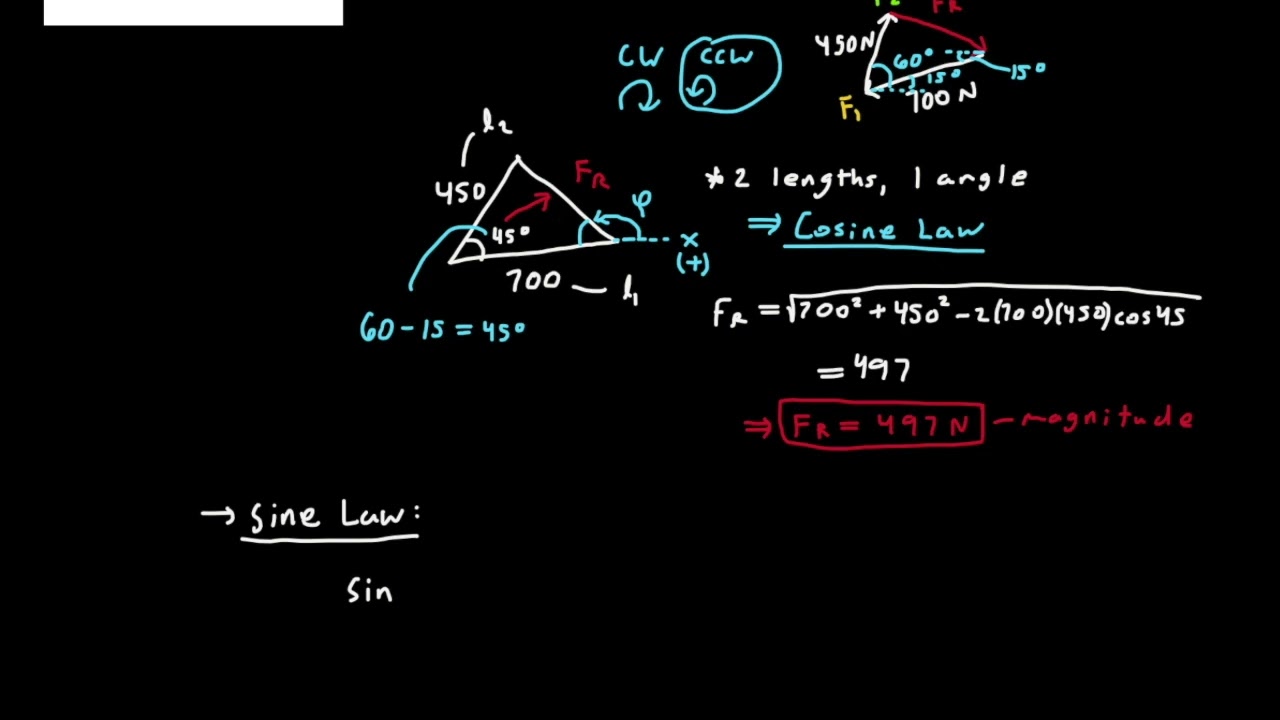 F₂ FR
450N
60°
15°
15°
700 N
F₁
CW CCW
l₂
450
FR
φ
45°
x
(+)
700 — l₁
60 - 15 = 45°
* 2 lengths, 1 angle
⇒ Cosine Law
FR = √700² + 450² - 2(700)(450)cos45
= 497
⇒ FR = 497 N - magnitude
→ Sine Law:
Sin